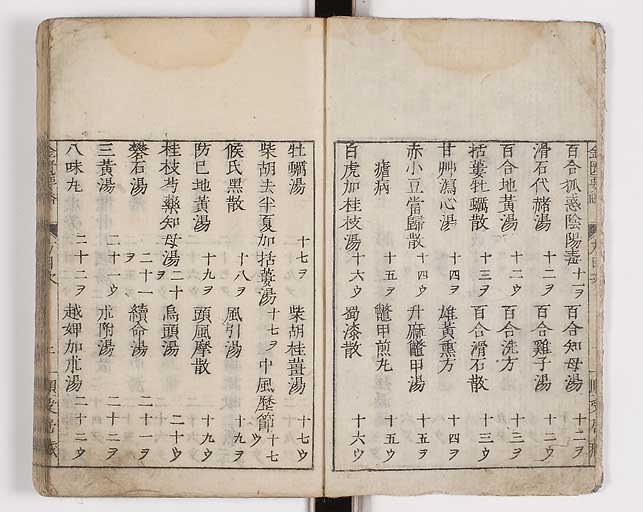 百合狐惑陰陽毒 十一ヲ 百合知母湯 十二ヲ
滑石代赭湯 十二ヲ 百合雞子湯 十二ウ
百合地黃湯 十二ウ 百合洗方 十三ヲ
括蔞牡蠣散 十三ヲ 百合滑石散 十三ウ
甘艸瀉心湯 十四ヲ 雄黃熏方 十四ヲ
赤小豆當歸散 十四ウ 升麻鼈甲湯 十五ウ
瘧病 十五ヲ 鼈甲煎丸 十五ウ
白虎加桂枝湯 十六ウ 蜀漆散 十六ウ
牡蠣湯 十七ヲ 柴胡桂薑湯 十七ウ
柴胡去半夏加括蔞湯 十七ヲ 中風歷節 十七ウ
侯氏黑散 十八ヲ 風引湯 十九ヲ
防巳地黃湯 十九ヲ 頭風摩散 十九ウ
桂枝芍藥知母湯 二十ヲ 烏頭湯 二十ウ
礬石湯 二十一ヲ 續命湯 二十一ヲ
三黃湯 二十一ウ 朮附湯 二十二ヲ
八味丸 二十二ヲ 越婢加朮湯 二十二ウ